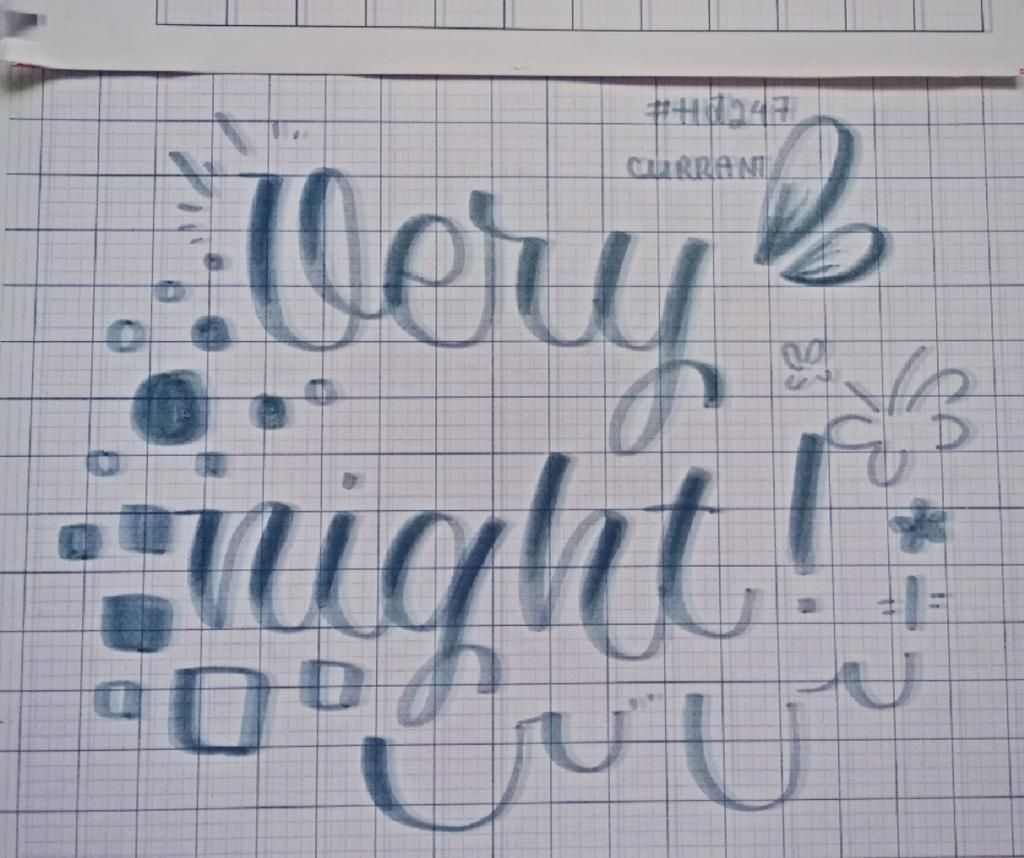 #HD247
CURRANT
Very
night!